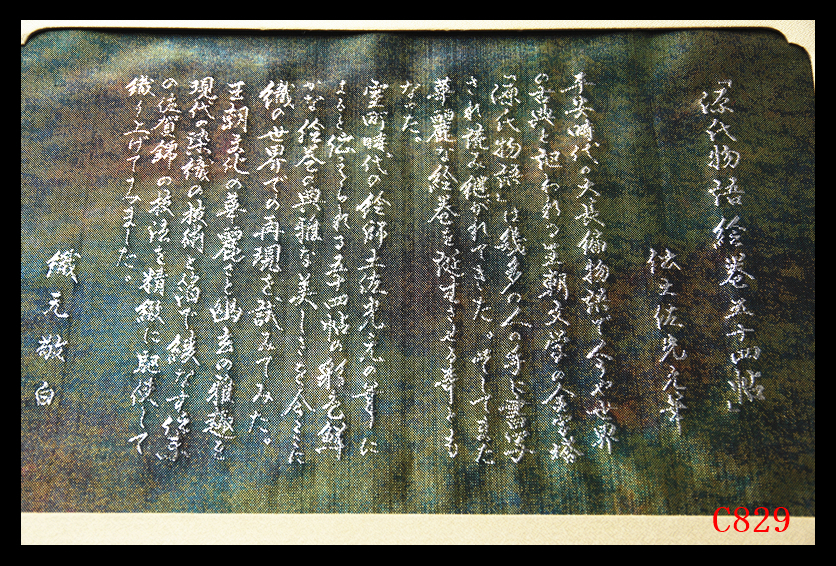 『源氏物語絵巻五十四帖』
伝土佐光元筆
平安時代の大長編物語で今や世界
の古典と謳われる王朝文学の金字塔
『源氏物語』は幾多の人の手に書写
され読み継がれてきた。そしてまた
華麗な絵巻を誕生させる華とも
なった。
室町時代の絵師土佐光元の筆に
よると伝えられる五十四帖の彩色鮮
かな絵巻の典雅な美しさを今ここに
織の世界での再現を試みてみた。
王朝文化の華麗さと幽玄の雅趣を
現代の染織の技術と絢で綾なす絵巻
の佐賀錦の技法を精緻に駆使して
織り上げてみました。
織元敬白
C829